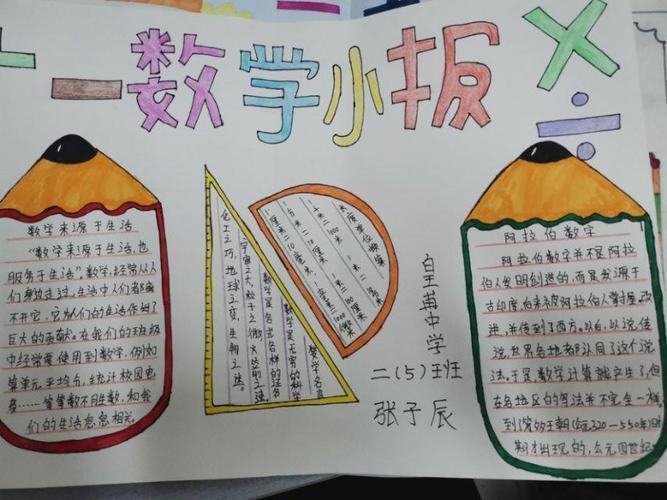 + - 数学小报 × ÷
数学来源于生活
“数学来源于生活，也
服务于生活”，数学，经常从人
们身边走过，生活中人们都离
不开它，它为人们的生活作出了
巨大的贡献。在我们的班级
中经常要使用到数学，例如
算单元平均分，统计校园电
卷……等等数不胜数，和我
们的生活息息相关。
数学名言
数学是无穷的科学
数学是各式各样的证明
宇宙之大，粒子之微，火箭之速，
化工之巧，地球之变，生物之谜。
长度单位换算
二（5）班
张子辰
阿拉伯数字
阿拉伯数字并不是阿拉
伯人发明创造的，而是发源于
古印度，后来被阿拉伯人掌握、改
进，并传到了西方，
世界各地都认同了这个说
法。于是，数学计算就产生了，但
在各地区的算法并不完全一样，
到了笈多王朝(公元320—550年)时
期才出现的，公元四世纪